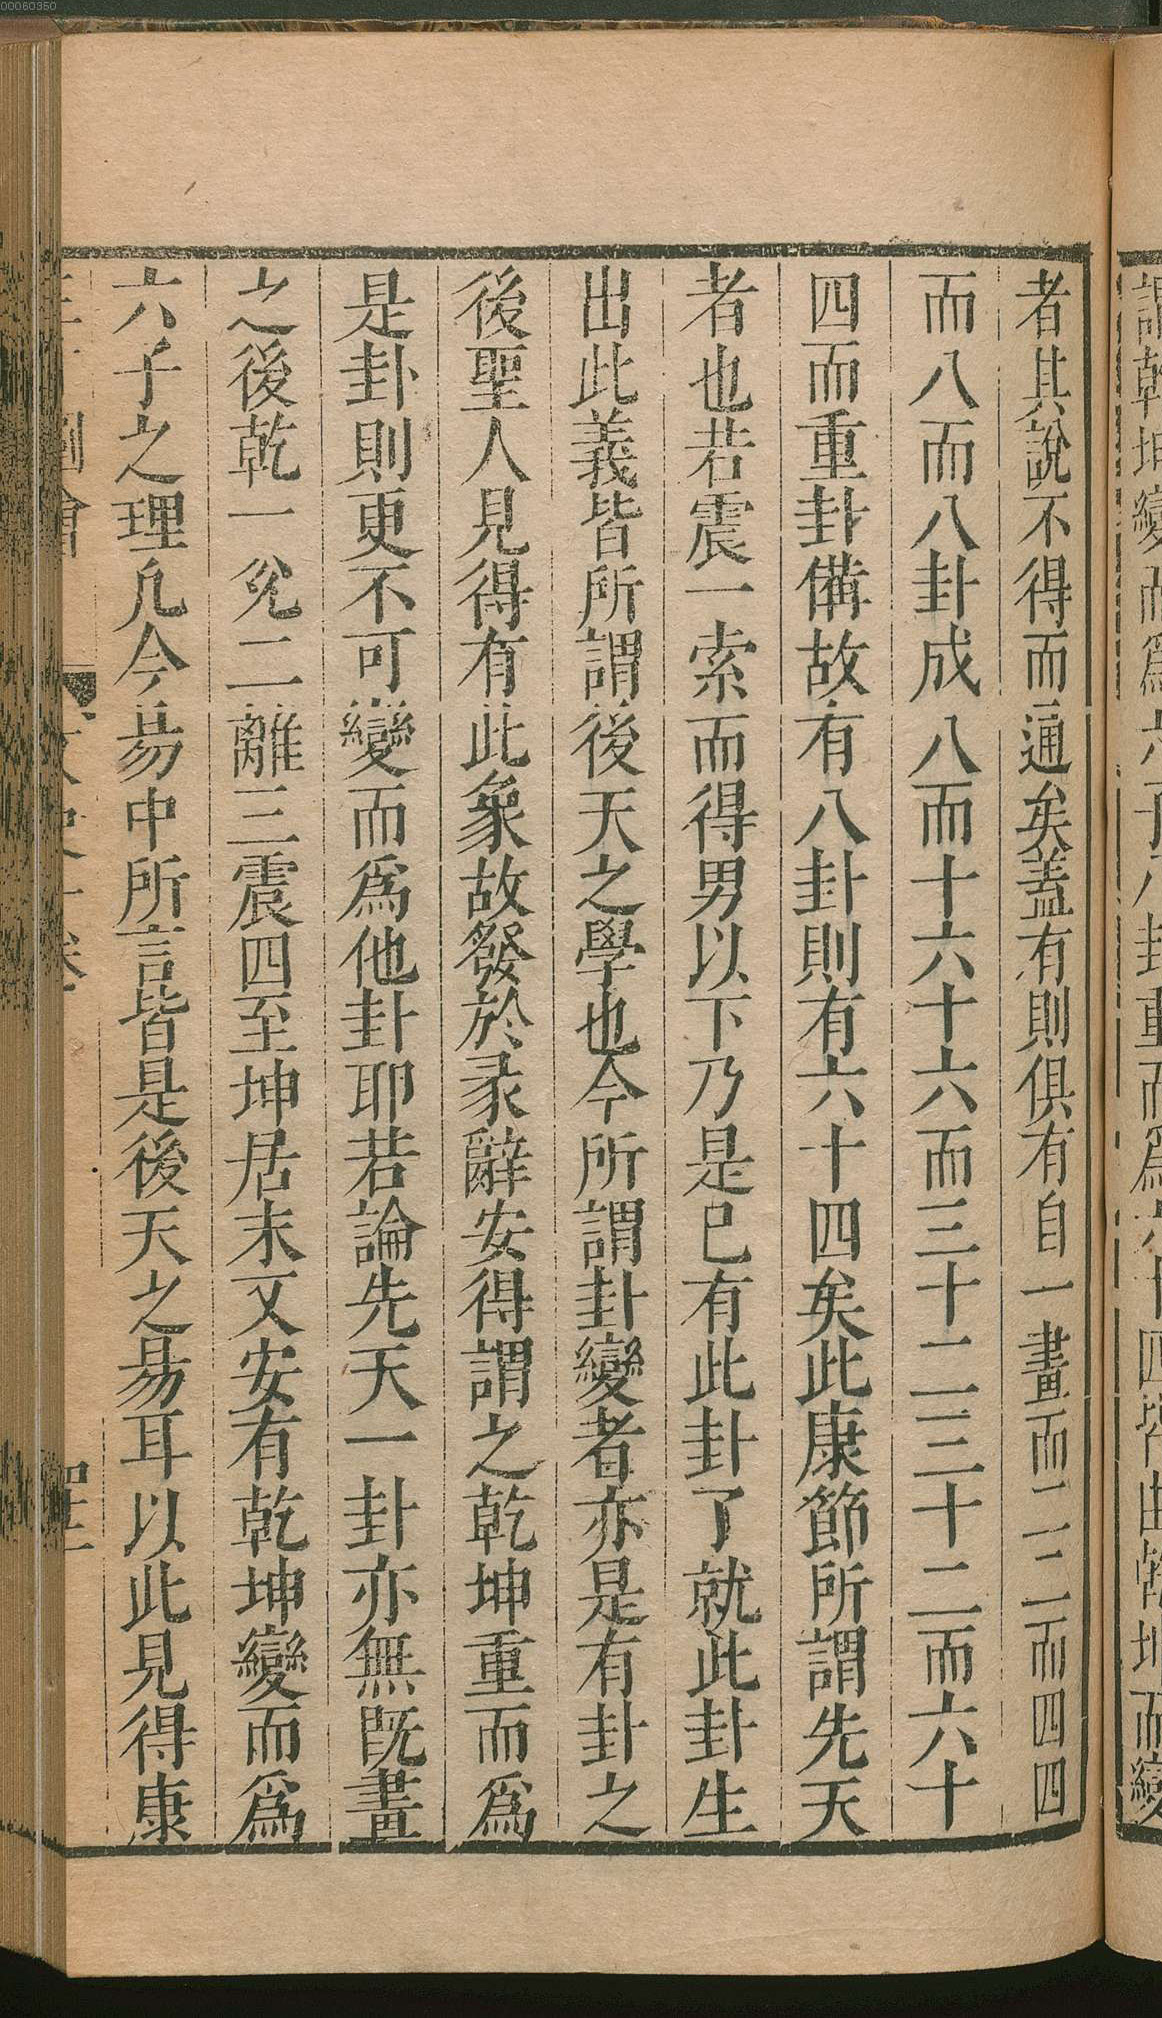 者其說不得而通矣蓋有則俱有自一畫而二二而四四
而八而八卦成八而十六十六而三十二三十二而六十
四而重卦備故有八卦則有六十四矣此康節所謂先天
者也若震一索而得男以下乃是已有此卦了就此卦生
出此義皆所謂後天之學也今所謂卦變者亦是有卦之
後聖人見得有此象故發於彖辭安得謂之乾坤重而為
是卦則更不可變而為他卦耶若論先天一卦亦無既畫
之後乾一兌二離三震四至坤居末又安有乾坤變而為
六子之理凡今易中所言皆是後天之易耳以此見得康
00060350